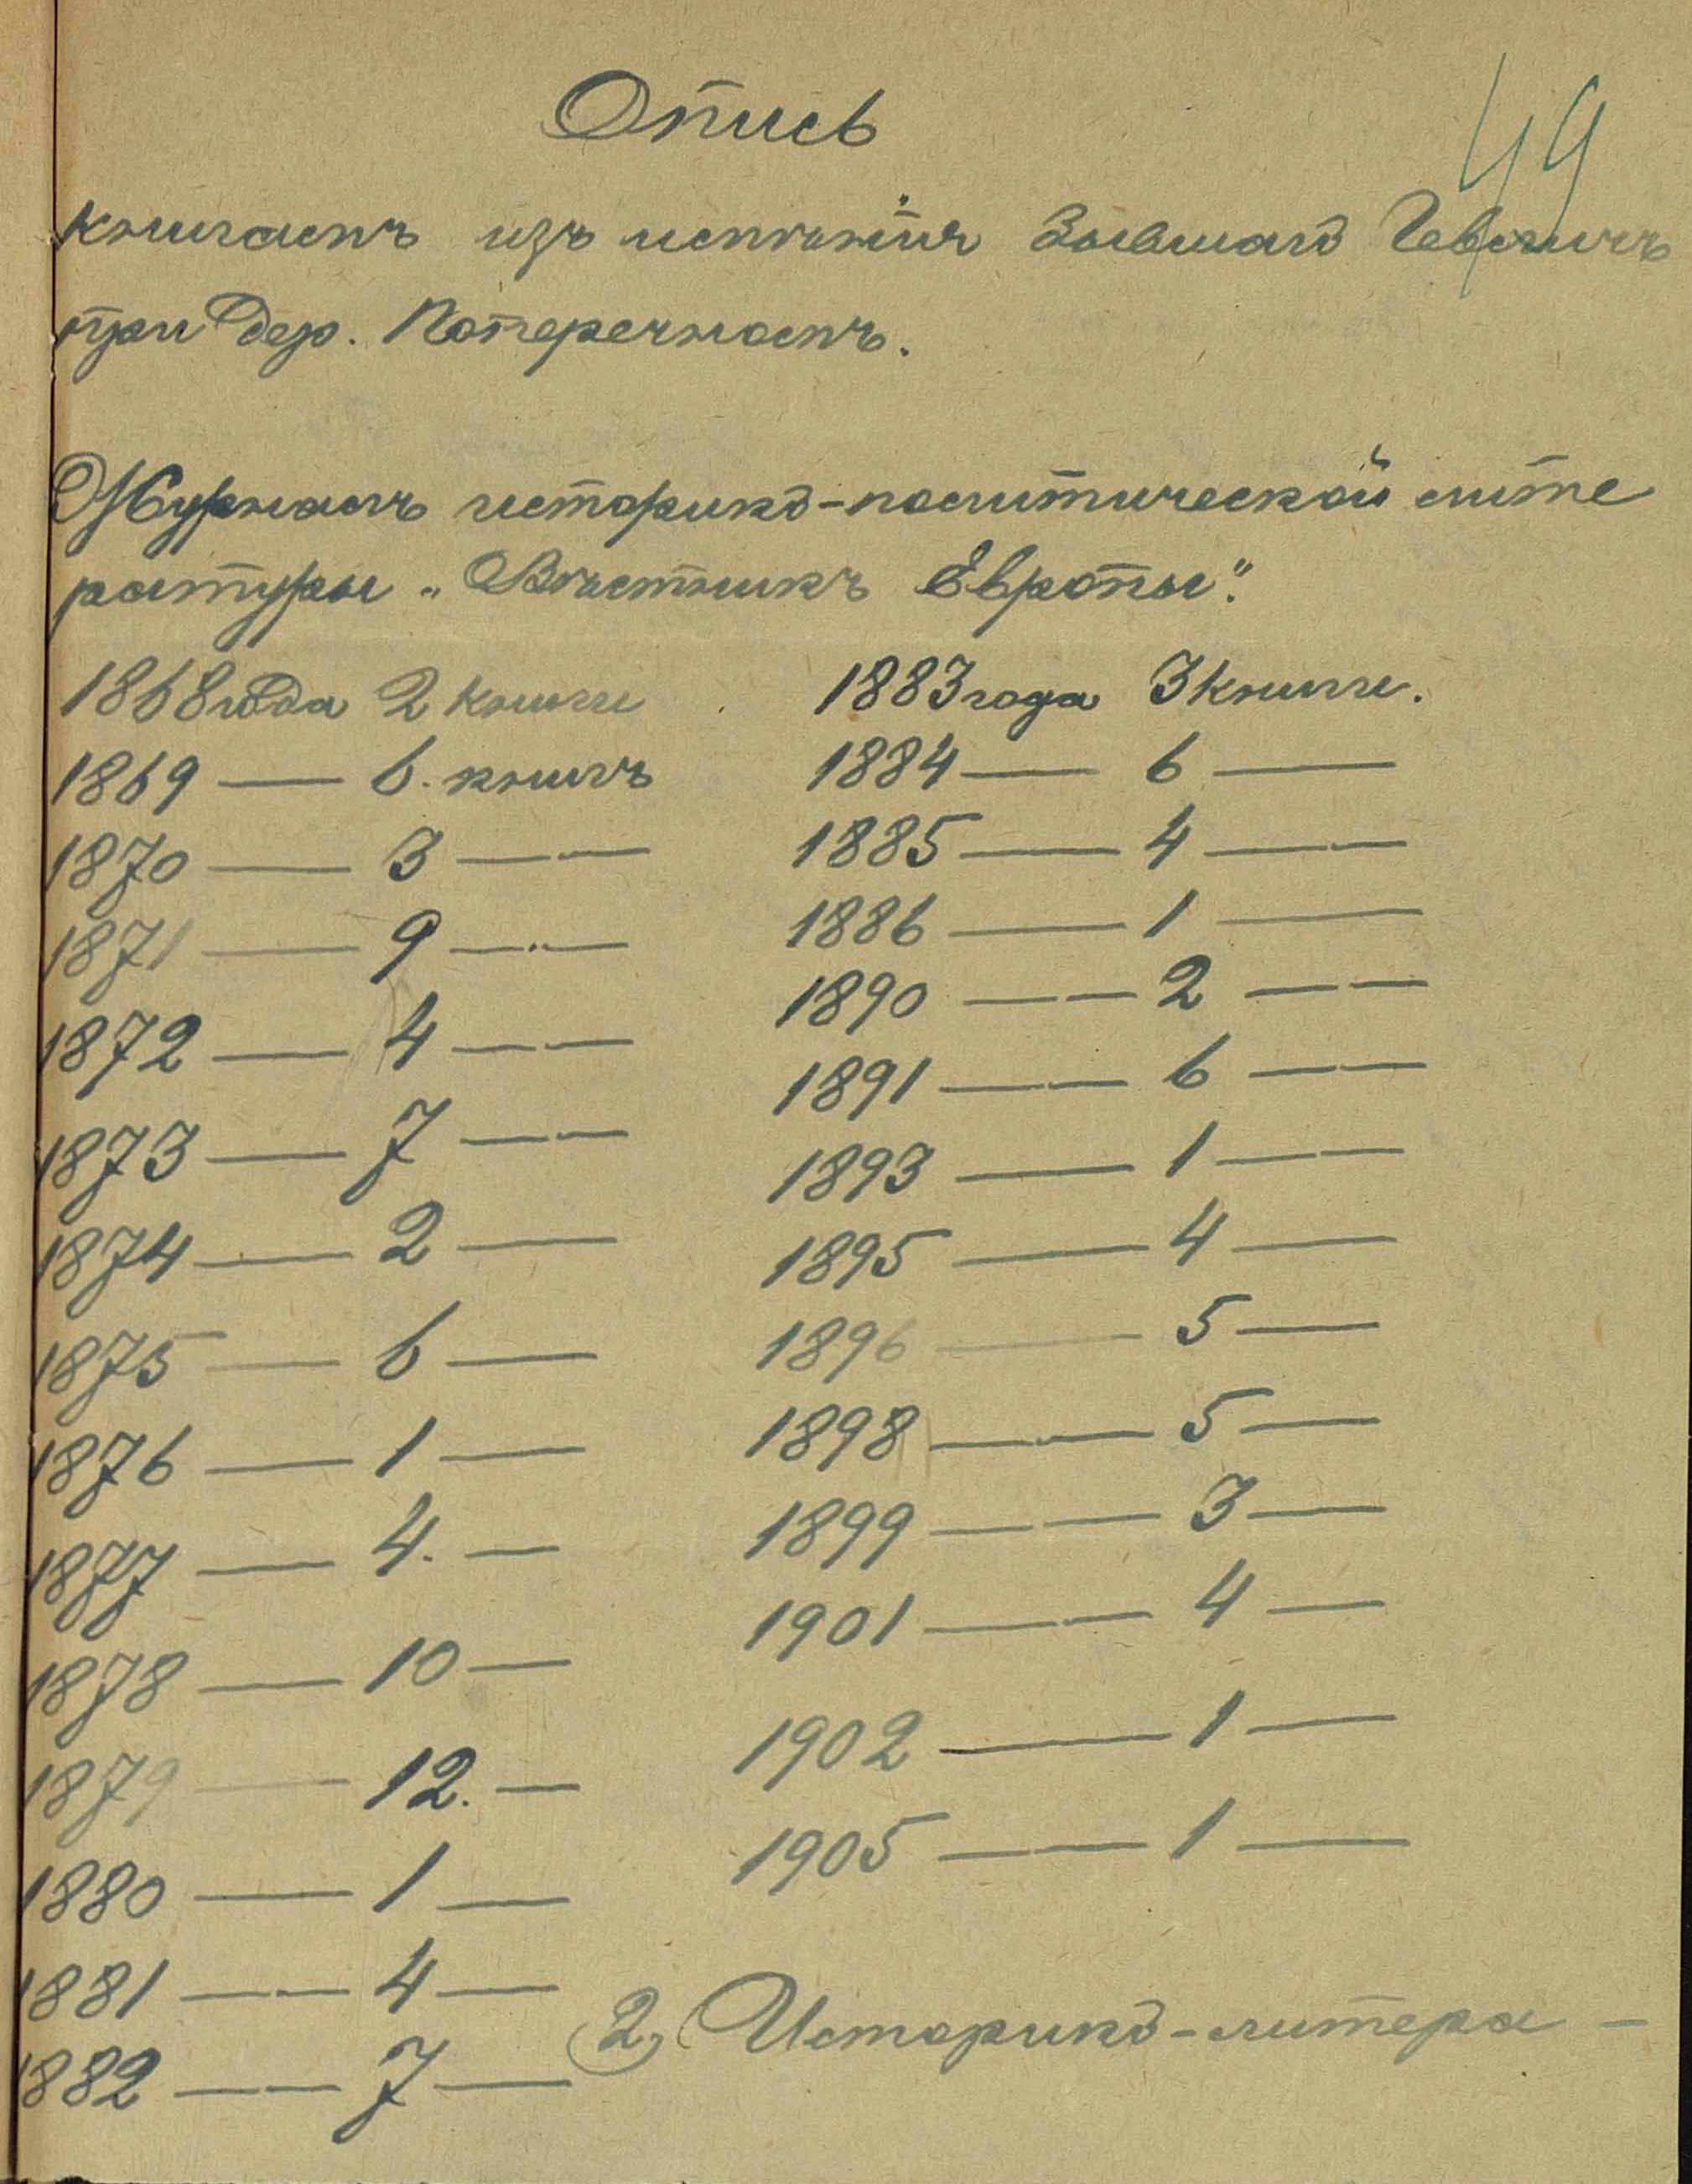 Опись
49
книгамъ изъ имѣнія бывшаго
при дер. Поперечномъ.
Журналъ историко-политической лите
ратуры „Вѣстникъ Европы".
1868 года 2 книги
1869 — 6. книгъ
1870 — 3 — —
1871 — 9 — —
1872 — 4 — —
1873 — 7 — —
1874 — 2 —
1875 — 6 —
1876 — 1 —
1877 — 4. —
1878 — 10 —
1879 — 12. —
1880 — 1 —
1881 — — 4 —
1882 — — 7 —
1883 года 3 книги.
1884 — 6 —
1885 — 4 — —
1886 — 1 —
1890 — — 2 — —
1891 — — 6 — —
1893 — 1 — —
1895 — 4 —
1896 — 5 —
1898 — — 5 —
1899 — — 3 —
1901 — — 4 —
1902 — 1 —
1905 — — 1 —
2) Историко-литера -